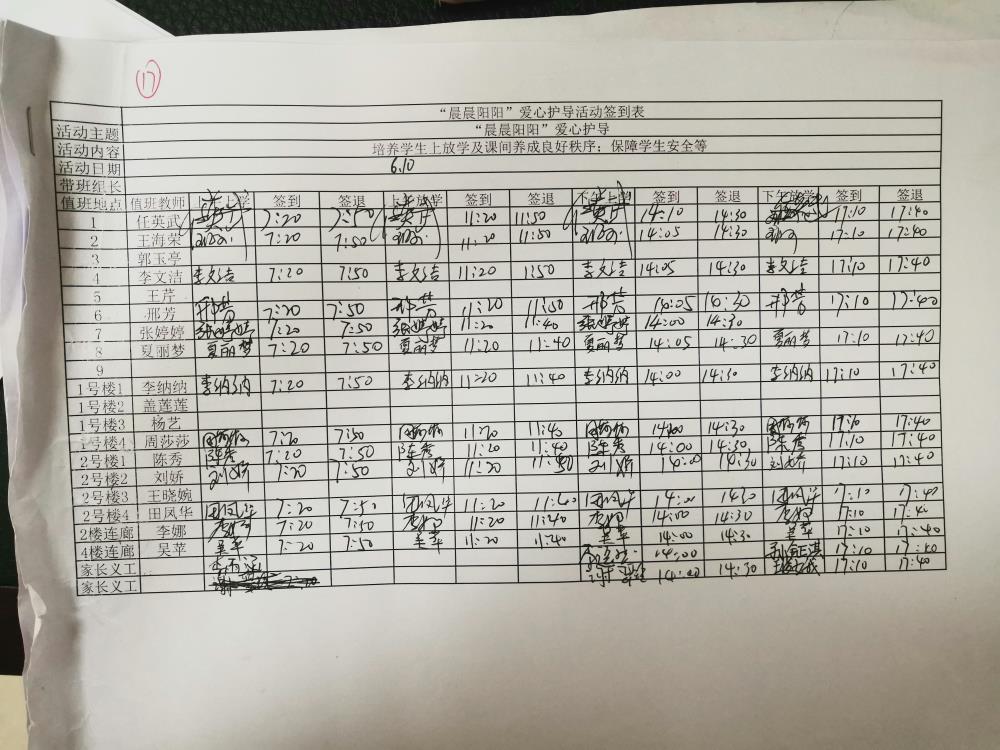 17
“晨晨阳阳”爱心护导活动签到表
活动主题 “晨晨阳阳”爱心护导
活动内容 培养学生上放学及课间养成良好秩序；保障学生安全等
活动日期 6.10
带班组长
值班地点 值班教师 上 上学 签到 签退 上午放学 签到 签退 下午上学 签到 签退 下午放学 签到 签退
1 任英武 7:20 7:50 11:20 11:50 14:10 14:30 17:10 17:40
2 王海荣 7:20 7:50 11:20 11:50 14:05 14:30 17:10 17:40
3 郭玉亭
4 李文洁 李文洁 7:20 7:50 李文洁 11:20 1:50 李文洁 14:05 14:30 李文洁 17:10 17:40
5 王芹
6 邢芳 邢芳 7:20 7:50 邢芳 11:20 11:50 邢芳 14:05 14:30 邢芳 17:10 17:40
7 张婷婷 张婷婷 7:20 7:50 张婷婷 11:20 11:40 张婷婷 14:00 14:30
8 夏丽梦 夏丽梦 7:20 7:50 夏丽梦 11:20 11:40 夏丽梦 14:05 14:30 夏丽梦 17:10 17:40
9
1号楼1 李纳纳 李纳纳 7:20 7:50 李纳纳 11:20 11:40 李纳纳 14:00 14:30 李纳纳 17:10 17:40
1号楼2 盖莲莲
1号楼3 杨艺
1号楼4 周莎莎 周莎莎 7:20 7:50 周莎莎 11:20 11:40 周莎莎 14:00 14:30 周莎莎 17:10 17:40
2号楼1 陈秀 陈秀 7:20 7:50 陈秀 11:20 11:40 陈秀 14:00 14:30 陈秀 17:10 17:40
2号楼2 刘娇 刘娇 7:20 7:50 刘娇 11:20 刘娇 14:00 14:30 刘娇 17:10 17:40
2号楼3 王晓婉
2号楼4 田凤华 田凤华 7:20 7:50 田凤华 11:20 11:40 田凤华 14:00 1430 田凤华 17:10 17:40
2楼连廊 李娜 7:20 7:50 11:20 11:40 14:00 14:30 17:10 17:40
4楼连廊 吴苹 吴苹 7:20 7:50 吴苹 11:20 11:40 吴苹 14:00 14:30 吴苹 17:10 17:40
家长义工 14:00 17:10
家长义工 14:00 14:30 17:10 17:40